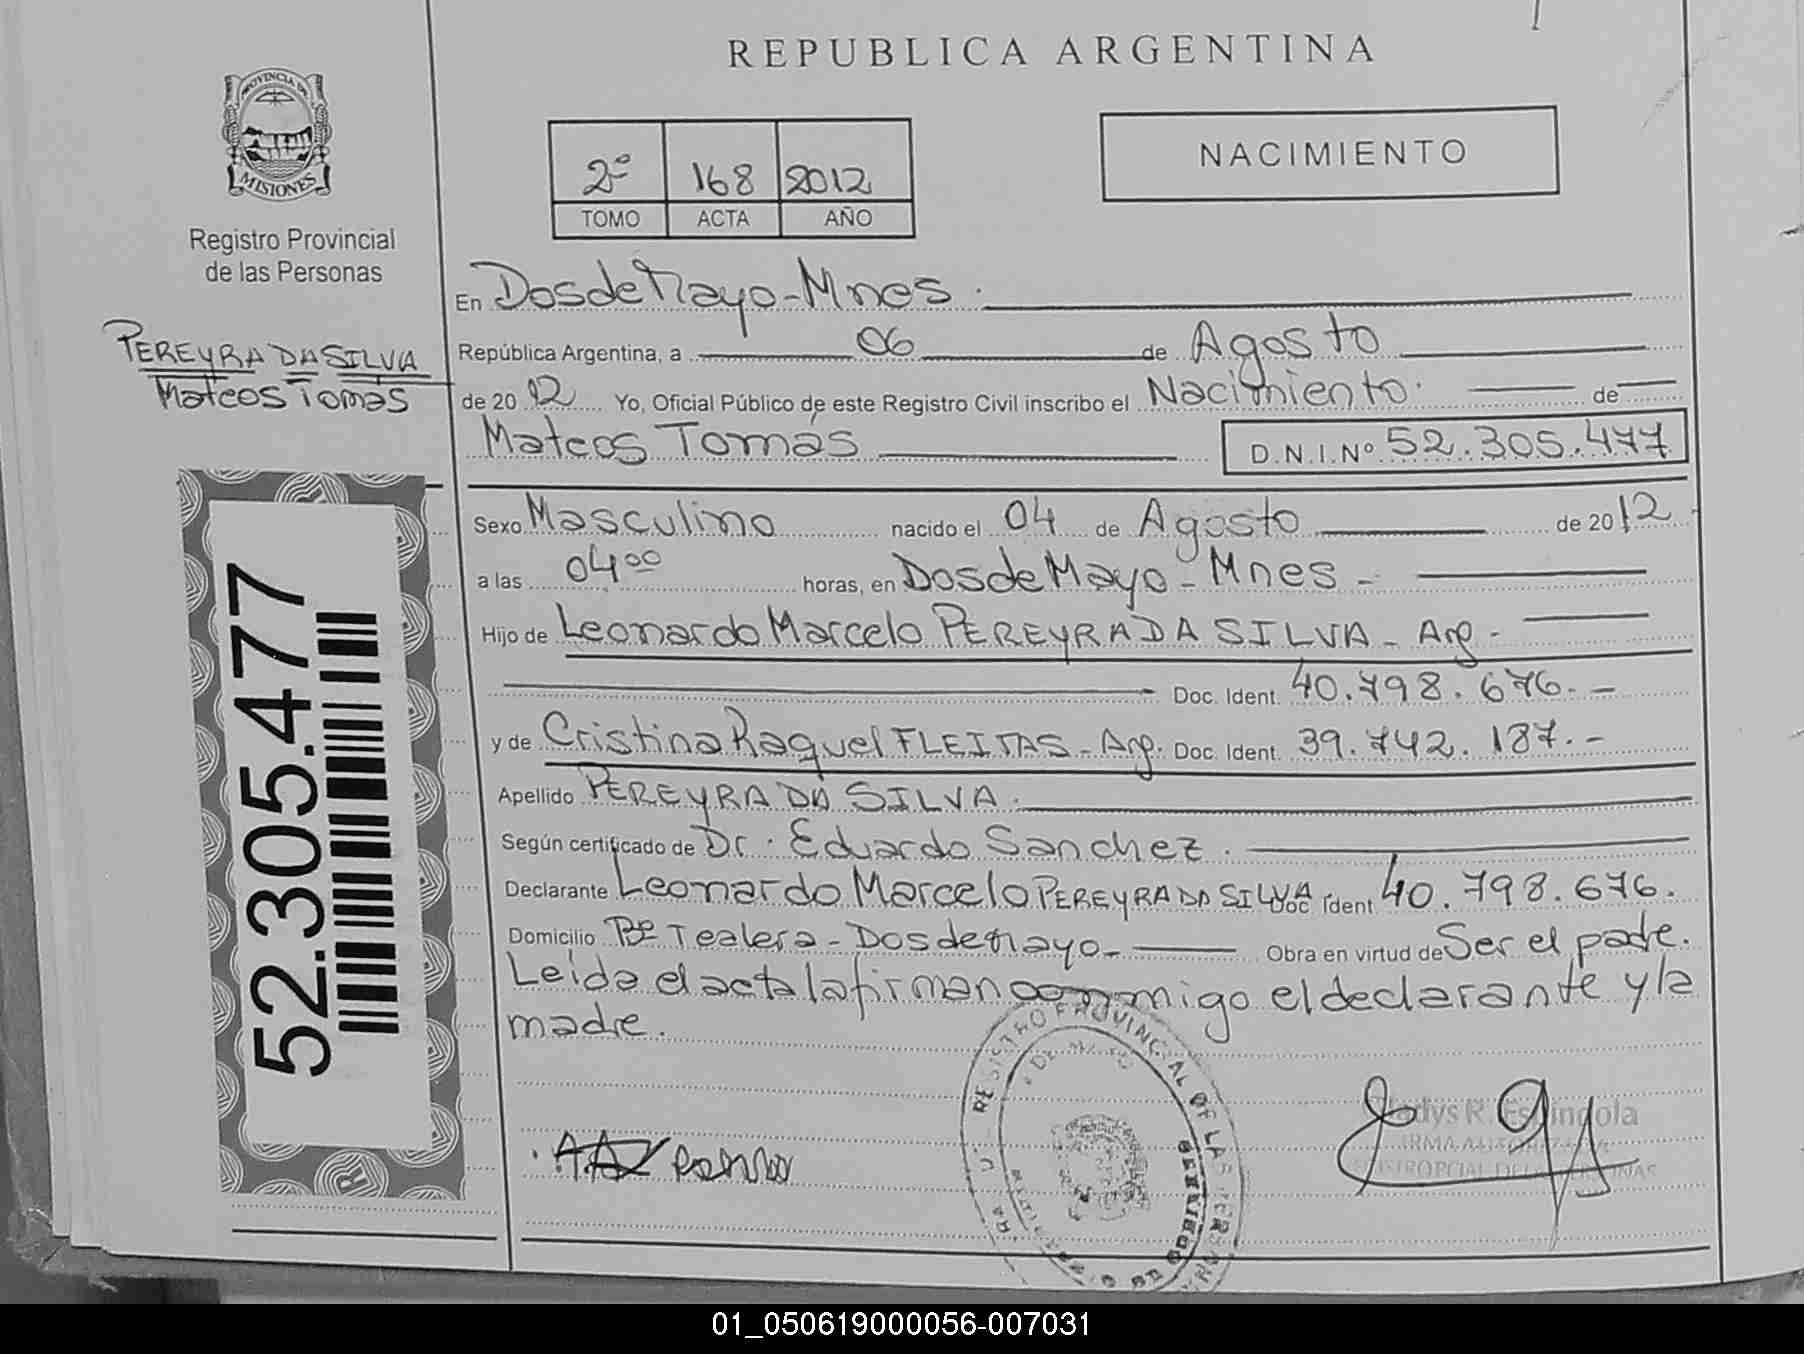 REPUBLICA ARGENTINA
PROVINCIA DE
MISIONES
Registro Provincial
de las Personas
2º 168 2012
TOMO ACTA AÑO
NACIMIENTO
PEREYRA DA SILVA
Mateos Tomás
52.305.477
En Dos de Mayo - Mnes.
República Argentina, a 06 de Agosto
de 2012 Yo, Oficial Público de este Registro Civil inscribo el Nacimiento de
Mateos Tomás D.N.I.Nº 52.305.477
Sexo Masculino nacido el 04 de Agosto de 2012
a las 04 00 horas, en Dos de Mayo - Mnes -
Hijo de Leonardo Marcelo PEREYRA DA SILVA - Arg -
Doc. Ident. 40.798.676.-
y de Cristina Raquel FLEITAS - Arg. Doc. Ident. 39.742.187.-
Apellido PEREYRA DA SILVA.
Según certificado de Dr. Eduardo Sanchez.
Declarante Leonardo Marcelo PEREYRA DA SILVA Doc. Ident. 40.798.676.
Domicilio Bº Tealera - Dos de Mayo - Obra en virtud de Ser el padre.
Leída el acta la firman conmigo el declarante y la
madre.
REGISTRO PROVINCIAL DE LAS PERSONAS
Gladys R. Espindola
FIRMA AUTORIZADA
01_050619000056-007031